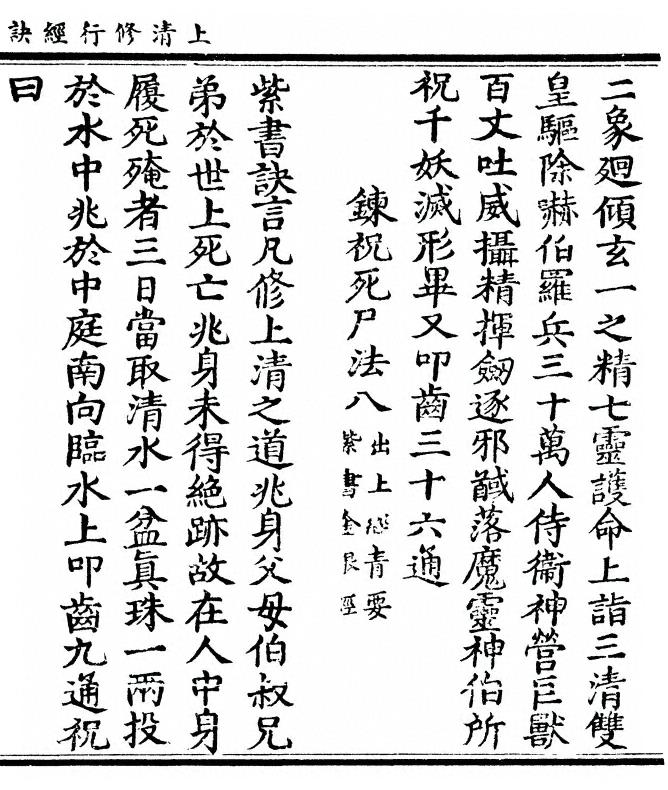 上清修行經訣
二象廻傾玄一之精七靈護命上詣三清雙
皇驅除嚇伯羅兵三十萬人侍衞神營巨獸
百丈吐威攝精揮劒逐邪馘落魔靈神伯所
祝千妖滅形畢又叩齒三十六通
鍊祝死尸法八 出上清要紫書金根經
紫書訣言凡修上清之道兆身父母伯叔兄
弟於世上死亡兆身未得絶跡故在人中身
履死殗者三日當取清水一盆眞珠一兩投
於水中兆於中庭南向臨水上叩齒九通祝
曰